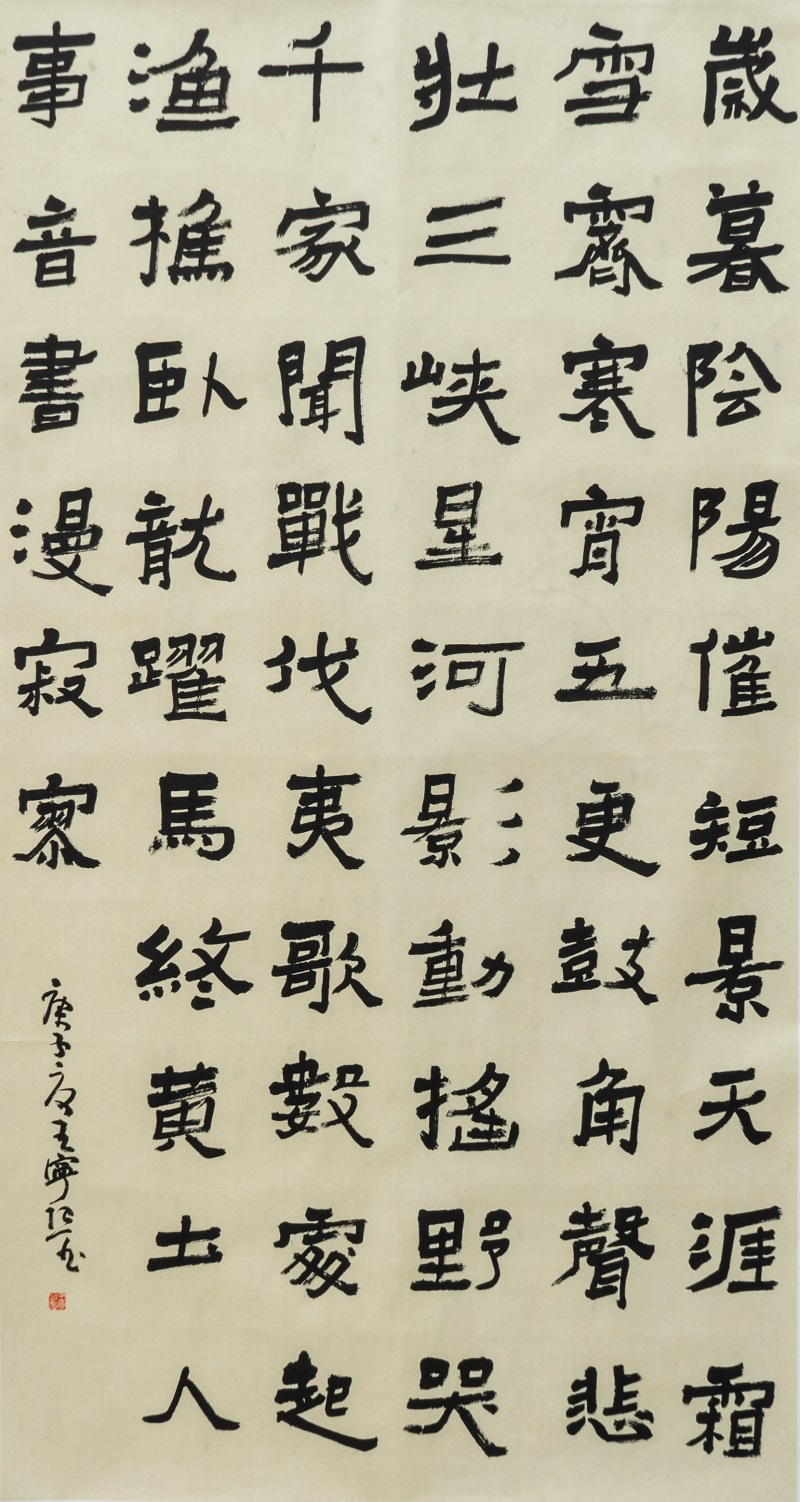 歲暮陰陽催短景天涯霜
雪霽寒宵五更鼓角聲悲
壯三峽星河影動搖野哭
千家聞戰伐夷歌數處起
漁樵臥龍躍馬終黃土人
事音書漫寂寥
庚子